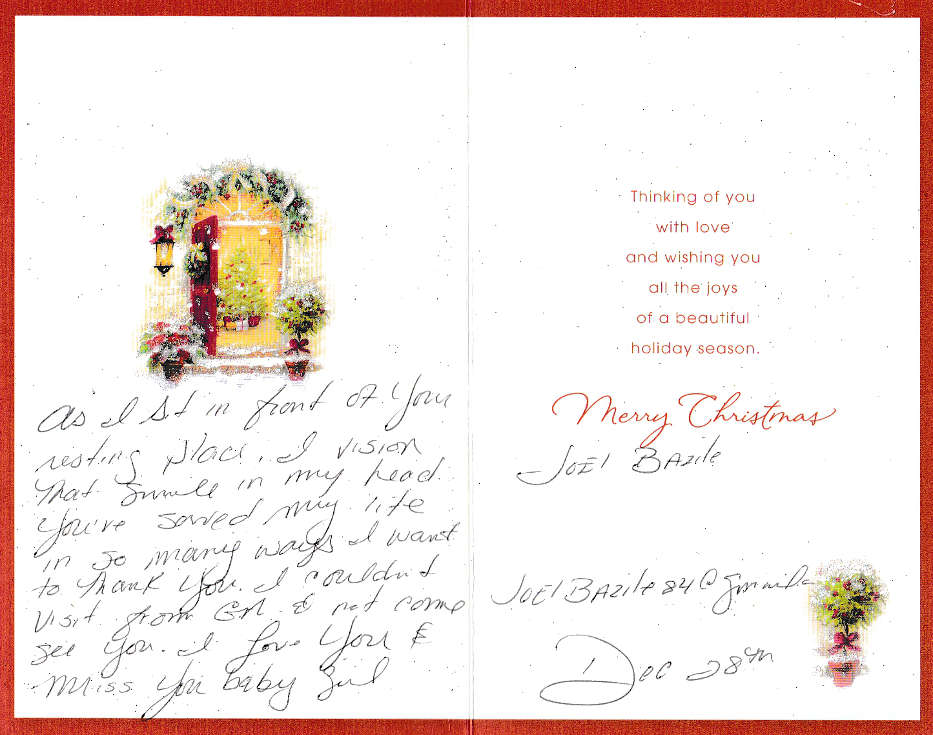 As I sit in front of your
resting place, I vision
that smile in my head.
You've saved my life
in so many ways I want
to thank you. I couldn't
visit from & not come
see you. I love you &
miss you baby girl
Thinking of you
with love
and wishing you
all the joys
of a beautiful
holiday season.
Merry Christmas
-Joel Bazile
JoelBazile84@
Dec 28th